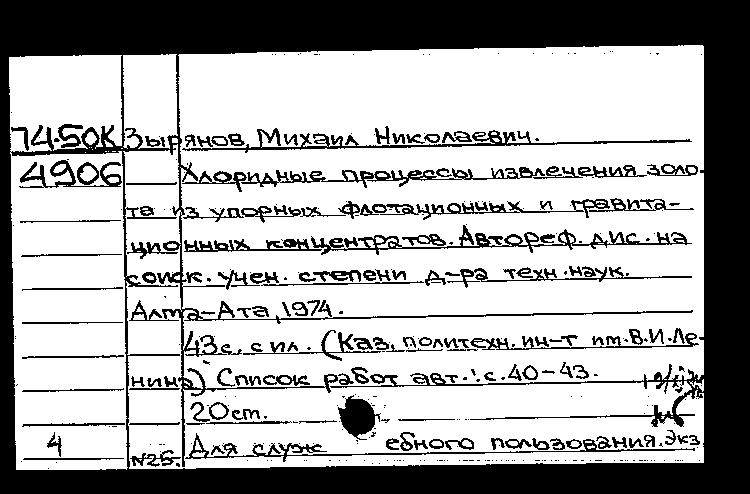 74-50К Зырянов, Михаил Николаевич.
4906 Хлоридные процессы извлечения золо-
та из упорных флотационных и гравита-
ционных концентратов. Автореф. дис. на
соиск. учен. степени д-ра техн. наук.
Алма-Ата, 1974.
43с. с ил. (Каз. политехн. ин-т им. В.И.Ле-
нина). Список работ авт.: с.40-43.
20см.
4 Для служебного пользования. Экз
№25.